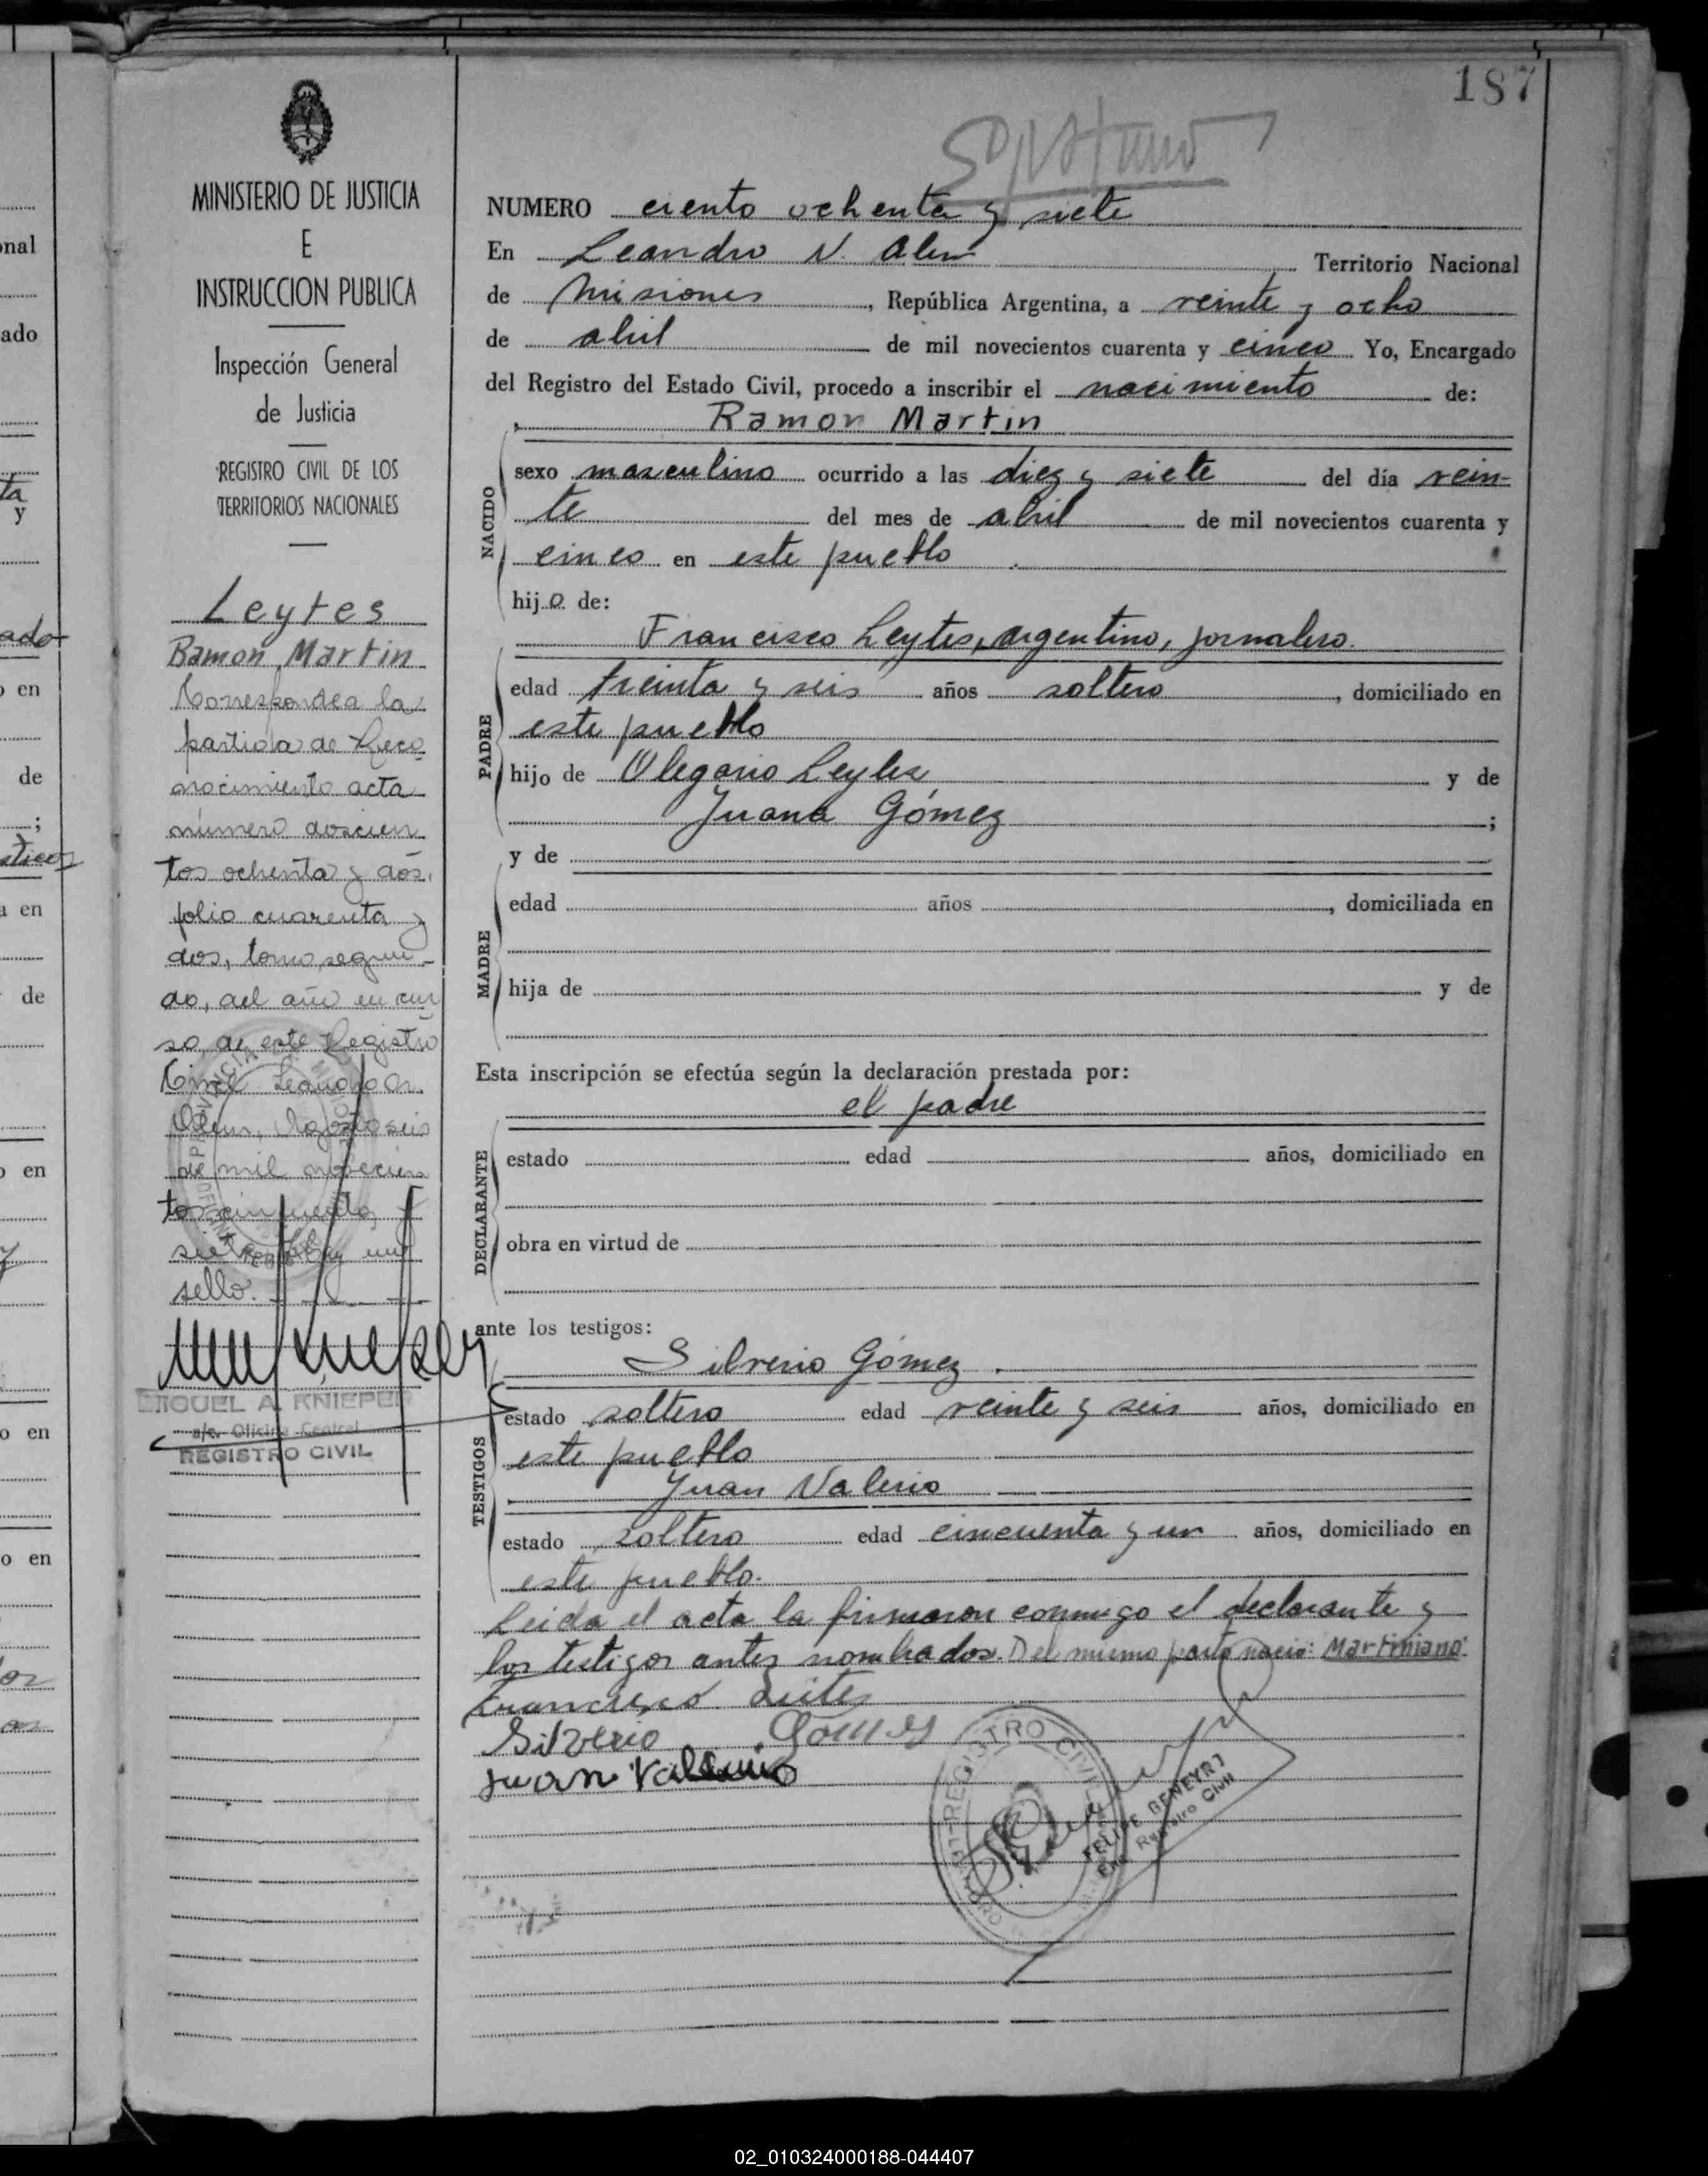 187
NUMERO ciento ochenta y siete
En Leandro N. Alem Territorio Nacional
de Misiones, República Argentina, a veinte y ocho
de abril de mil novecientos cuarenta y cinco Yo, Encargado
del Registro del Estado Civil, procedo a inscribir el nacimiento de:
Ramon Martin
NACIDO
sexo masculino ocurrido a las diez y siete del día vein-
te del mes de abril de mil novecientos cuarenta y
cinco en este pueblo
hijo de:
Francisco Leytes, argentino, jornalero.
PADRE
edad treinta y seis años soltero, domiciliado en
este pueblo
hijo de Olegario Leytes y de
Juana Gómez;
y de
MADRE
edad años, domiciliada en
hija de y de
Esta inscripción se efectúa según la declaración prestada por:
el padre
DECLARANTE
estado edad años, domiciliado en
obra en virtud de
ante los testigos:
Silverio Gómez
TESTIGOS
estado soltero edad veinte y seis años, domiciliado en
este pueblo
Juan Valerio
estado soltero edad cincuenta y un años, domiciliado en
este pueblo.
Leida el acta la firmaron conmigo el declarante y
los testigos antes nombrados. Del mismo parto nació: Martiniano.
Francisco Leites
Silverio Gomes
Juan Valerio
REGISTRO CIVIL
FELIPE BENEYRT
Enc. Registro Civil
MINISTERIO DE JUSTICIA
E
INSTRUCCION PUBLICA
Inspección General
de Justicia
REGISTRO CIVIL DE LOS
TERRITORIOS NACIONALES
Leytes
Ramon Martin
Corresponde a la
partida de Reco
nocimiento acta
número doscien
tos ochenta y dos,
folio cuarenta y
dos, tomo segun-
do, del año en cur
so, de este Registro
Civil Leandro N.
Alem, Agosto seis
de mil novecien
tos cincuenta y
siete. Hay un
sello.
MIGUEL A. KNIEPER
a/c. Oficina Central
REGISTRO CIVIL
nal
ado
ta
y
ado
o en
de
;
a en
de
o en
o en
o en
02_010324000188-044407